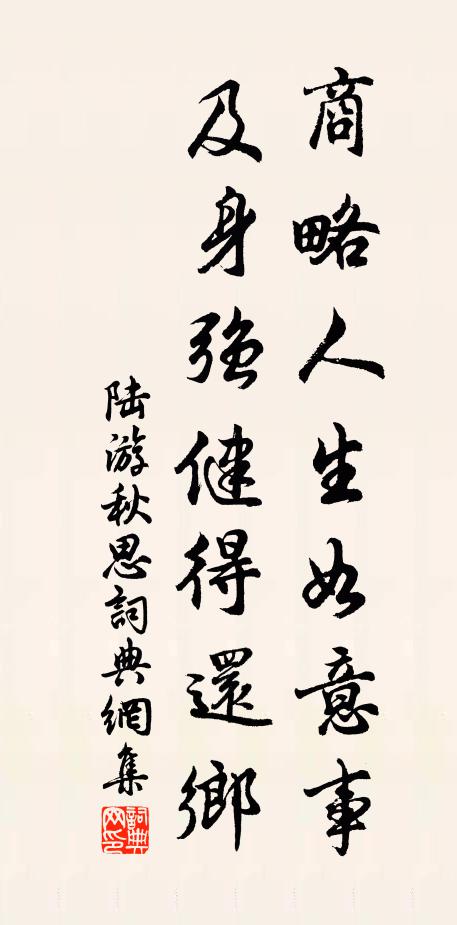 商略人生如意事
及身強健得還鄉
陆游秋思詞典網集
詞典网印